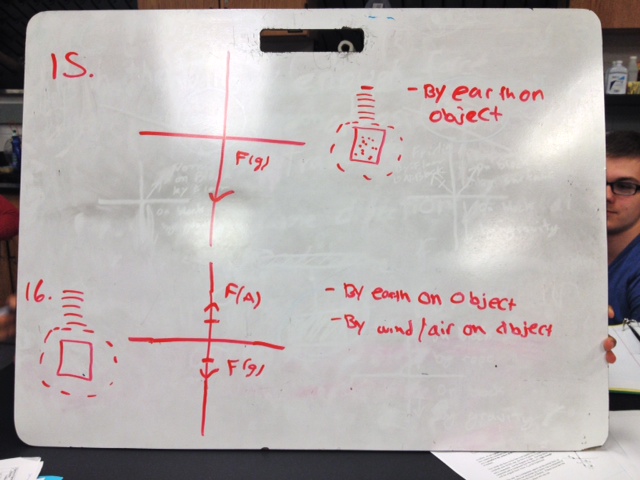 15.
F(g)
- By earth on
object
16.
F(A)
F(g)
- By earth on object
- By wind/air on object